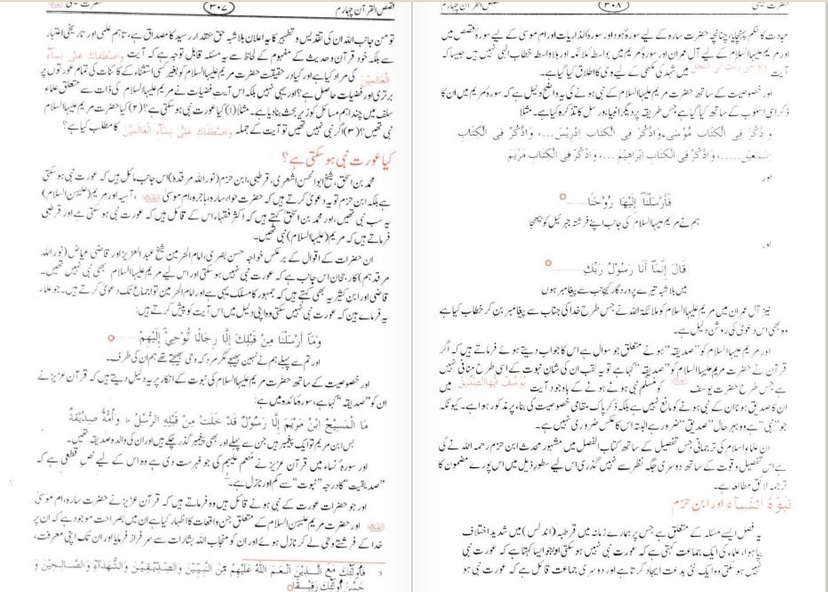 قصص القرآن چہارم
۳۰۷
حضرت عیسیٰ
تو من جانب اللہ ان کی تقدیس و تطہیر کا یہ اعلان بلاشبہ حق بحقدار رسید کا مصداق ہے، تاہم علمی اور تاریخی اعتبار
سے بلکہ خود قرآن و حدیث کے مفہوم کے لحاظ سے یہ مسئلہ قابل توجہ ہے کہ آیت وَاصْطَفَاكِ عَلٰى نِسَآءِ
الْعَالَمِيْنَ کی مراد کیا ہے اور کیا در حقیقت حضرت مریم علیہا السلام کو بغیر کسی استثناء کے کائنات کی تمام عورتوں پر
برتری اور فضیلت حاصل ہے؟ اور یہی نہیں بلکہ اس آیت فضیلت نے مریم علیہا السلام کی ذات سے متعلق علماء
سلف میں چند اہم مسائل کو زیر بحث بنا دیا ہے۔ مثلاً (۱) کیا عورت نبی ہو سکتی ہے؟ (۲) کیا حضرت مریم علیہا السلام
نبی تھیں؟ (۳) اگر نبی نہیں تھیں تو آیت کے جملہ وَاصْطَفَاكِ عَلٰى نِسَآءِ الْعَالَمِيْنَ کا مطلب کیا ہے؟
کیا عورت نبی ہو سکتی ہے؟
محمد بن اسحٰق، شیخ ابوالحسن اشعری، قرطبی، ابن حزم (نور اللہ مرقدہٗ) اس جانب مائل ہیں کہ عورت نبی ہو سکتی
ہے بلکہ ابن حزم تو یہ دعویٰ کرتے ہیں کہ حضرت حواء، سارہ، ہاجرہ، ام موسیٰ ، آسیہ اور مریم (علیہن السلام)
یہ سب نبی تھیں، اور محمد بن اسحٰق کہتے ہیں کہ اکثر فقہاء اس کے قائل ہیں کہ عورت نبی ہو سکتی ہے اور قرطبی
فرماتے ہیں کہ مریم (علیہا السلام) نبی تھیں۔
ان حضرات کے اقوال کے برعکس خواجہ حسن بصری، امام الحرمین شیخ عبد العزیز اور قاضی عیاض (نور اللہ
مرقدہم) کا رجحان اس جانب ہے کہ عورت نبی نہیں ہو سکتی اور اس لیے مریم علیہا السلام بھی نبی نہیں تھیں۔
قاضی اور ابن کثیر یہ بھی کہتے ہیں کہ جمہور کا مسلک یہی ہے اور امام الحرمین تو اجماع تک دعویٰ کرتے ہیں۔ جو علماء
یہ فرماتے ہیں کہ عورت نبی نہیں ہو سکتی وہ اپنی دلیل میں اس آیت کو پیش کرتے ہیں:
وَمَا أَرْسَلْنَا مِنْ قَبْلِكَ إِلَّا رِجَالًا نُّوْحِيْ إِلَيْهِمْ
اور تم سے پہلے ہم نے نہیں بھیجے مگر مرد کہ وحی بھیجتے تھے ہم ان کی طرف۔
اور خصوصیت کے ساتھ حضرت مریم علیہا السلام کی نبوت کے انکار پر یہ دلیل دیتے ہیں کہ قرآن عزیز نے
ان کو ”صدیقہ“ کہا ہے، سورۂ مائدہ میں ہے:
مَا الْمَسِيْحُ ابْنُ مَرْيَمَ إِلَّا رَسُوْلٌ قَدْ خَلَتْ مِنْ قَبْلِهِ الرُّسُلُ ط وَأُمُّهٗ صِدِّيْقَةٌ
بس ابن مریم تو ایک پیغمبر ہیں جن سے پہلے اور بھی پیغمبر گزر چکے ہیں اور ان کی والدہ صدیقہ تھیں۔
اور سورۂ نساء میں قرآن عزیز نے منعم علیہم کی جو فہرست دی ہے وہ اس کے لیے نص قطعی ہے کہ
”صدیقیت“ کا درجہ ”نبوت“ سے کم اور نازل ہے۔
اور جو حضرات عورت کے نبی ہونے کے قائل ہیں وہ فرماتے ہیں کہ قرآن عزیز نے حضرت سارہ، ام موسیٰ
اور حضرت مریم علیہن السلام کے متعلق جن واقعات کا اظہار کیا ہے ان میں بصراحت موجود ہے کہ ان پر
خدا کے فرشتے وحی لے کر نازل ہوئے اور ان کو منجاب اللہ بشارات سے سرفراز فرمایا اور ان تک اپنی معرفت،
فَأُولٰٓئِكَ مَعَ الَّذِيْنَ أَنْعَمَ اللّٰهُ عَلَيْهِمْ مِّنَ النَّبِيِّيْنَ وَالصِّدِّيْقِيْنَ وَالشُّهَدَآءِ وَالصَّالِحِيْنَ وَ
حَسُنَ أُولٰٓئِكَ رَفِيْقًا
قصص القرآن چہارم
۳۰۸
حضرت عیسیٰ
عبادت کا حکم پہنچایا، چنانچہ حضرت سارہ کے لیے سورۂ ہود اور سورۂ الذاریات اور ام موسیٰ کے لیے سورۂ قصص میں
اور مریم علیہا السلام کے لیے آل عمران اور سورۂ مریم میں بواسطہ ملائکہ اور بلا واسطہ خطاب الٰہی نہیں ہیں جیسا کہ
آیت میں شہد کی مکھی کے لیے وحی کا اطلاق کیا گیا ہے۔
اور خصوصیت کے ساتھ حضرت مریم علیہا السلام کے نبی ہونے کی یہ واضح دلیل ہے کہ سورۂ مریم میں ان کا
ذکر اسی اسلوب کے ساتھ کیا گیا ہے جس طریقہ پر دیگر انبیاء و رسل کا تذکرہ کیا ہے۔ مثلاً
وَاذْكُرْ فِى الْكِتَابِ مُوْسٰى، وَاذْكُرْ فِى الْكِتَابِ إِدْرِيْسَ ....، وَاذْكُرْ فِى الْكِتَابِ
إِسْمٰعِيْلَ .....، وَاذْكُرْ فِى الْكِتَابِ إِبْرَاهِيْمَ ....، وَاذْكُرْ فِى الْكِتَابِ مَرْيَمَ
اور
فَأَرْسَلْنَآ إِلَيْهَا رُوْحَنَا ......
ہم نے مریم علیہا السلام کی جانب اپنے فرشتہ جبرئیل کو بھیجا
اور
قَالَ إِنَّمَآ أَنَا رَسُوْلُ رَبِّكِ ......
میں بلاشبہ تیرے پروردگار کی جانب سے پیغامبر ہوں
نیز آل عمران میں مریم علیہا السلام کو ملائکۃ اللہ نے جس طرح خدا کی جناب سے پیغامبر بن کر خطاب کیا ہے
وہ بھی اس دعویٰ کی روشن دلیل ہے۔
اور مریم علیہا السلام کو ”صدیقہ“ ہونے متعلق جو سوال ہے اس کا جواب دیتے ہوئے فرماتے ہیں کہ اگر
قرآن نے حضرت مریم علیہا السلام کو ”صدیقہ“ کہا ہے تو یہ لقب ان کی شان نبوت کے اسی طرح منافی نہیں
ہے جس طرح حضرت یوسف کو مسلم نبی ہونے کے باوجود آیت يُوْسُفُ أَيُّهَا الصِّدِّيْقُ میں
ان کا صدیق ہونا ان کے نبی ہونے کو مانع نہیں ہے بلکہ ذکر پاک مقامی خصوصیت کی بناء پر مذکور ہوا ہے۔ کیونکہ
جو ”نبی“ ہے وہ بہر حال ”صدیق“ ضرور ہے البتہ اس کا عکس ضروری نہیں ہے۔
ان علماء اسلام کی ترجمانی جس تفصیل کے ساتھ کتاب الفصل میں مشہور محدث ابن حزم رحمہ اللہ نے کی
ہے اس تفصیل و قوت کے ساتھ دوسری جگہ نظر سے نہیں گذری اس لیے سطور ذیل میں اس پورے مضمون کا
ترجمہ لائق مطالعہ ہے۔
نُبُوَّةُ النِّسَآء اور ابن حزم
یہ فصل ایسے مسئلہ کے متعلق ہے جس پر ہمارے زمانہ میں قرطبہ (اندلس) میں شدید اختلاف
بپا ہوا، علماء کی ایک جماعت کہتی ہے کہ عورت نبی نہیں ہو سکتی اور جو ایسا کہتا ہے کہ عورت نبی
نہیں ہو سکتی وہ ایک نئی بدعت ایجاد کرتا ہے اور دوسری جماعت قائل ہے کہ عورت نبی ہو